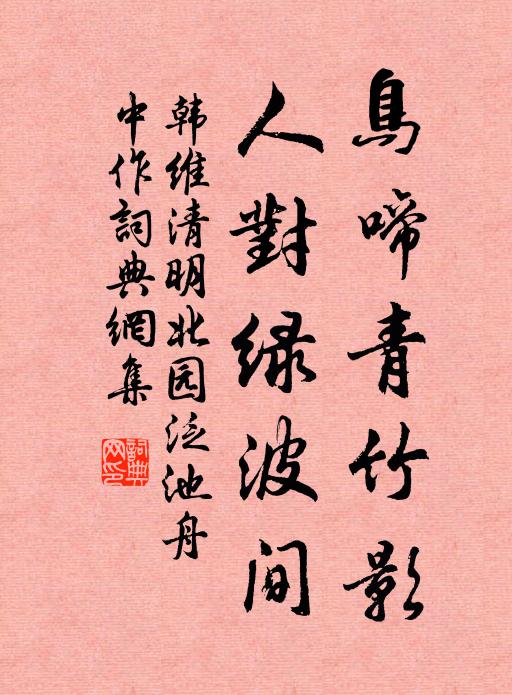 鳥啼青竹影
人對緑波间
韩维清明北园泛池舟
中作詞典網集
詞典網印